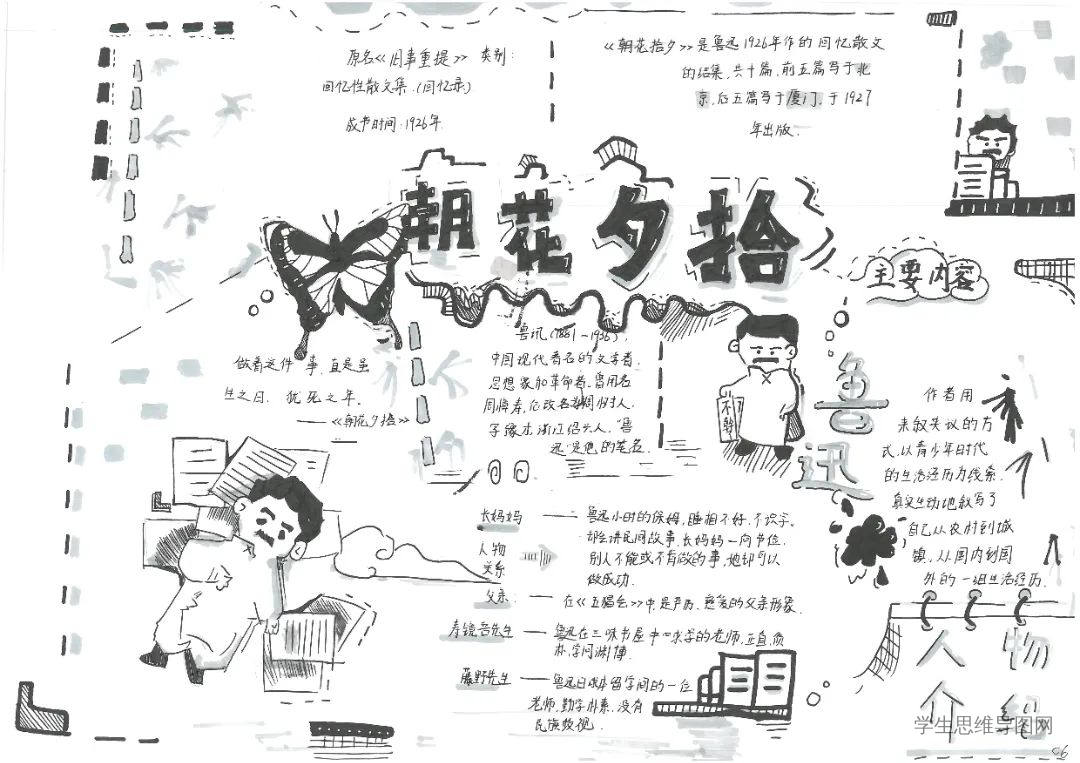 原名《旧事重提》 类别:
回忆性散文集.(回忆录)
成书时间:1926年.
《朝花拾夕》是鲁迅1926年作的回忆散文
的结集,共十篇,前五篇写于北
京,后五篇写于厦门,于1927
年出版.
朝花夕拾
主要内容
鲁迅(1881-1936),
中国现代著名的文学者,
思想家和革命者,曾用名
周樟寿,后改名
浙江绍
迅"是他的笔名.
做着这件事,直是虽
生之日, 犹死之年.
——《朝花夕拾》
不弊
鲁迅
作者用
来叙夹议的方
式,以青少年时代
的生活经历为线索,
真实生动地叙写了
自己从农村到城
镇,从国内到国
外的一组生活经历.
长妈妈 —— 鲁迅小时的保姆,睡相不好,不识字.
却会讲民间故事,长妈妈一向
别人不能或不肯做的事,她却可以
做成功.
人物
关系
父亲 —— 在《五猖会》中是严厉、慈爱的父亲形象.
寿镜吾先生 —— 鲁迅在三味书屋中求学的老师,正直,质
朴,学问渊博.
藤野先生 —— 鲁迅日本留学间的一位
老师,勤学朴素,没有
民族歧视.
人物
介绍
学生思维导图网
06